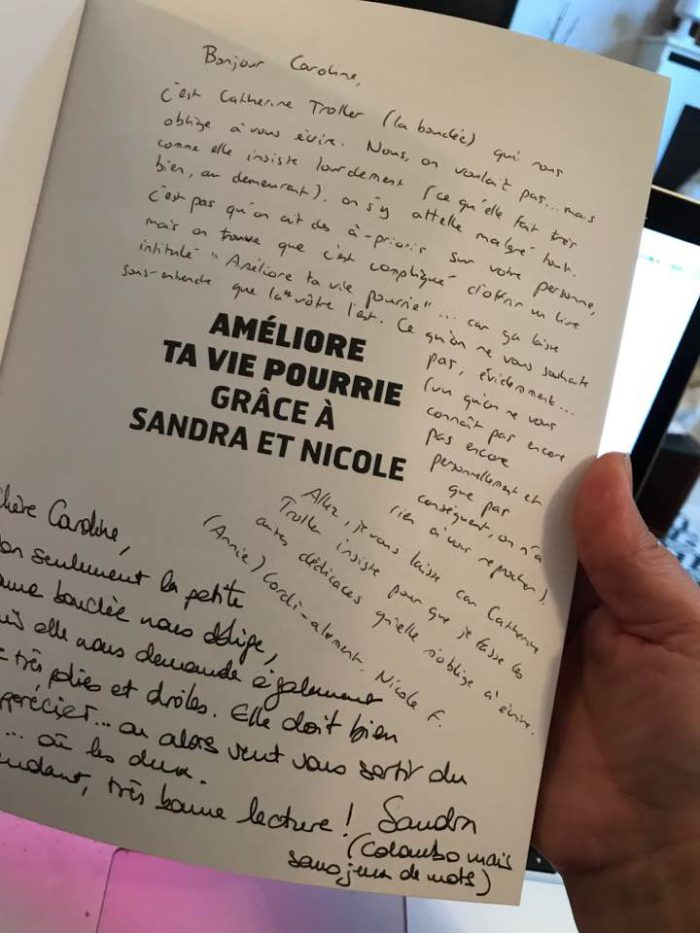 Bonjour Caroline,
c'est Catherine Troller (la bouclée) qui nous
oblige à vous écrire. Nous, on voulait pas... mais
comme elle insiste lourdement (ce qu'elle fait très
bien, au demeurant), on s'y attelle malgré tout.
c'est pas qu'on ait des à-prioris sur votre personne,
mais on trouve que c'est compliqué d'offrir un livre
intitulé "Améliore ta vie pourrie"... car ça laisse
sous-entendre que la vôtre l'est. Ce qu'on ne vous souhaite
pas, évidemment...
(vu qu'on ne vous
connaît pas encore
pas encore
personnellement et
que par
conséquent, on n'a
rien à vous reprocher).
AMÉLIORE
TA VIE POURRIE
GRÂCE À
SANDRA ET NICOLE
Allez, je vous laisse car Catherine
Troller insiste pour que je fasse les
autres dédicaces qu'elle m'oblige à écrire.
(Annie) Cordi-alement, Nicole F.
Chère Caroline,
non seulement la petite
bouclée nous oblige,
elle nous demande également
très polies et drôles. Elle doit bien
apprécier... ou alors veut vous sortir du
... où les deux.
très bonne lecture! Sandra
(Colombo mais
sans jeux de mots)